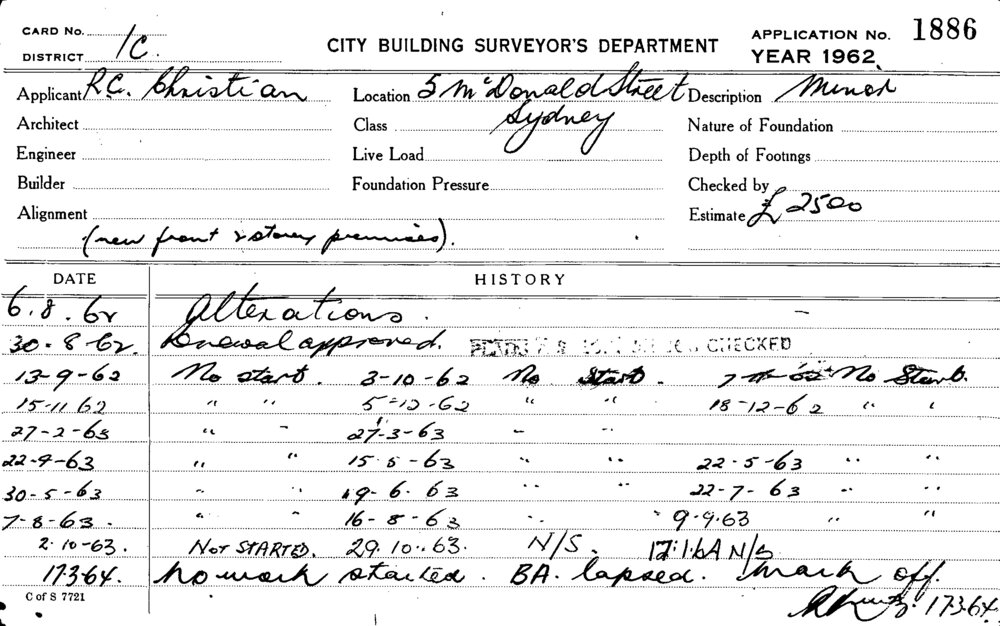 CARD No.
DISTRICT 1C.
CITY BUILDING SURVEYOR'S DEPARTMENT
APPLICATION No. 1886
YEAR 1962.
Applicant R.C. Christian Location 5 McDonald Street Description Minor
Architect Class Sydney Nature of Foundation
Engineer Live Load Depth of Footings
Builder Foundation Pressure Checked by
Alignment Estimate £ 2500
(new front 2 storey premises).
DATE HISTORY
6.8.62 Alterations.
30-8-62. Renewal approved. CHECKED
13-9-62 No start. 3-10-62 No Start. No Start.
15-11 62 " " 5-12-62 " " 18-12-62 " "
27-2-63 " " 27-3-63 " "
22-9-63 " " 15-5-63 " " 22-5-63 " "
30-5-63 " " 19-6-63 " " 22-7-63 " "
7-8-63. " " 16-8-63 " " 9-9.63 " "
2.10-63. NOT STARTED. 29.10.63. N/S. N/S
17.3.64. No work started. BA. lapsed. Mark off.
17.3.64.
C of S 7721